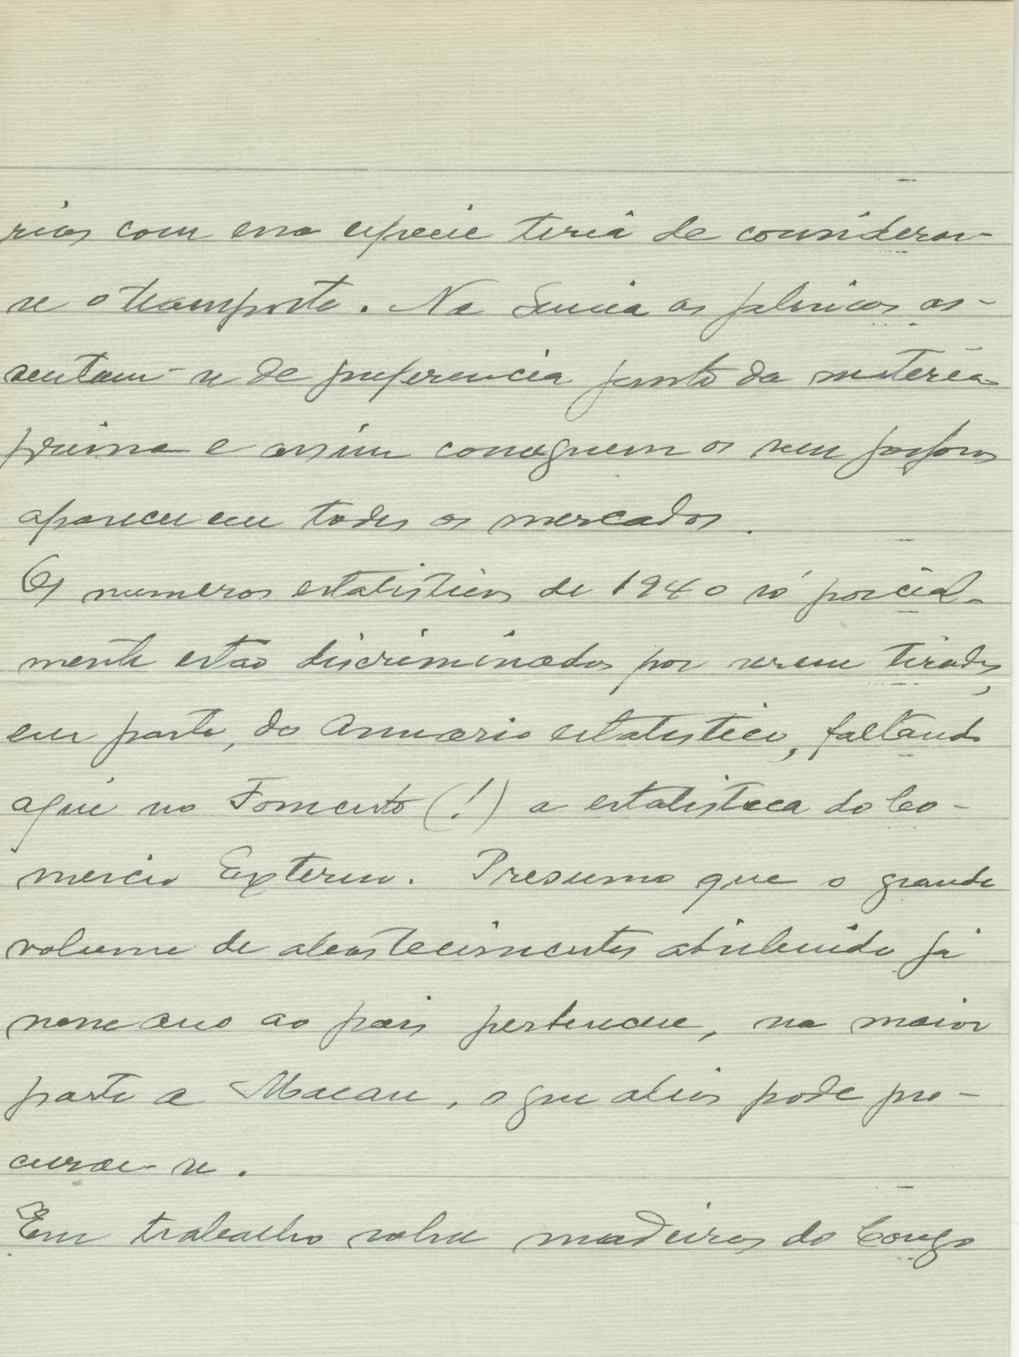 rios com essa especie teria de considerar-
se o transporte. Na Suecia as fabricas as-
sentam-se de preferencia junto da matéria
prima e assim conseguem os seus fosforos
aparecer em todos os mercados.
Os numeros estatisticos de 1940 só parcial-
mente estão discriminados por serem tirados,
em parte, do Anuario estatistico, faltando
aqui no Fomento (!) a estatistica do Co-
mercio Externo. Presumo que o grande
volume de abastecimentos atribuido já
nesse ano ao pais pertencem, na maior
parte a Macau, o que alias pode pro-
curar-se.
Em trabalho sobre madeiras do Congo